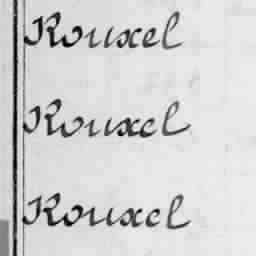 Rouxel
Rouxel
Rouxel